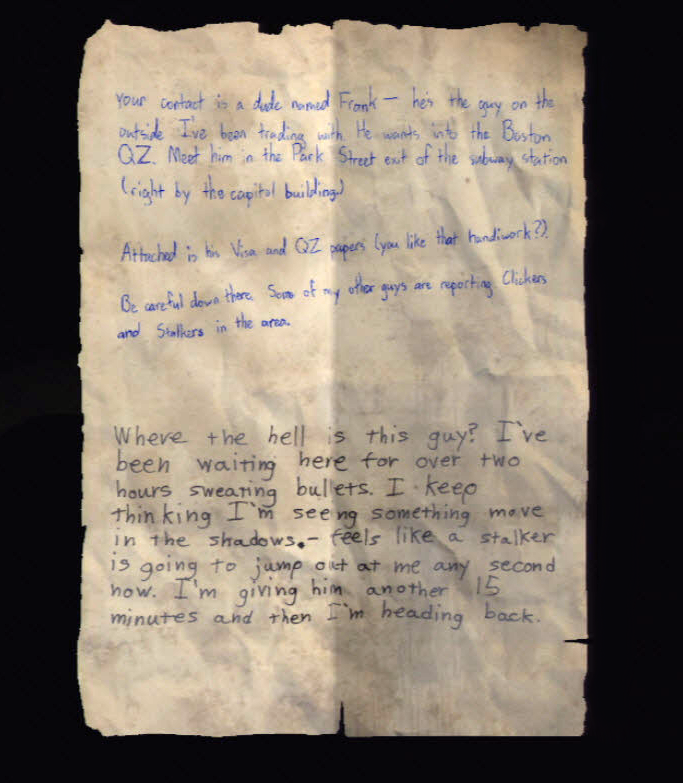 Your contact is a dude named Frank — he's the guy on the
outside I've been trading with. He wants into the Boston
QZ. Meet him in the Park Street exit of the subway station
(right by the capitol building.)
Attached is his Visa and QZ papers (you like that handiwork?).
Be careful down there. Some of my other guys are reporting Clickers
and Stalkers in the area.
Where the hell is this guy? I've
been waiting here for over two
hours sweating bullets. I keep
thinking I'm seeng something move
in the shadows.– feels like a stalker
is going to jump out at me any second
now. I'm giving him another 15
minutes and then I'm heading back.